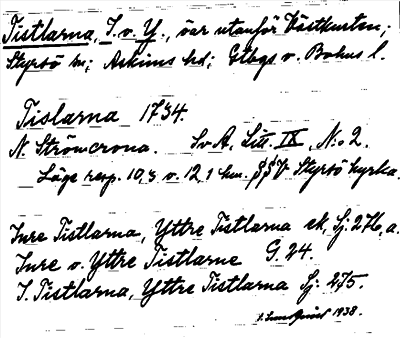 Tistlarna, I. o. Y., öar utanför Västkusten;
Styrsö sn; Askims hd; Gtbgs o. Bohus l.
Tislarna 1734.
N. Strömcrona. Sv A, Litt. IX, N:o 2.
Läge resp. 10,3 o. 12,1 km. SSV Styrsö kyrka.
Inre Tistlarna, Yttre Tistlarna ek, Sj. 276, a.
Inre o. Yttre Tistlarne G. 24.
I. Tistlarna, Yttre Tistlarna Sj. 275.
1938.